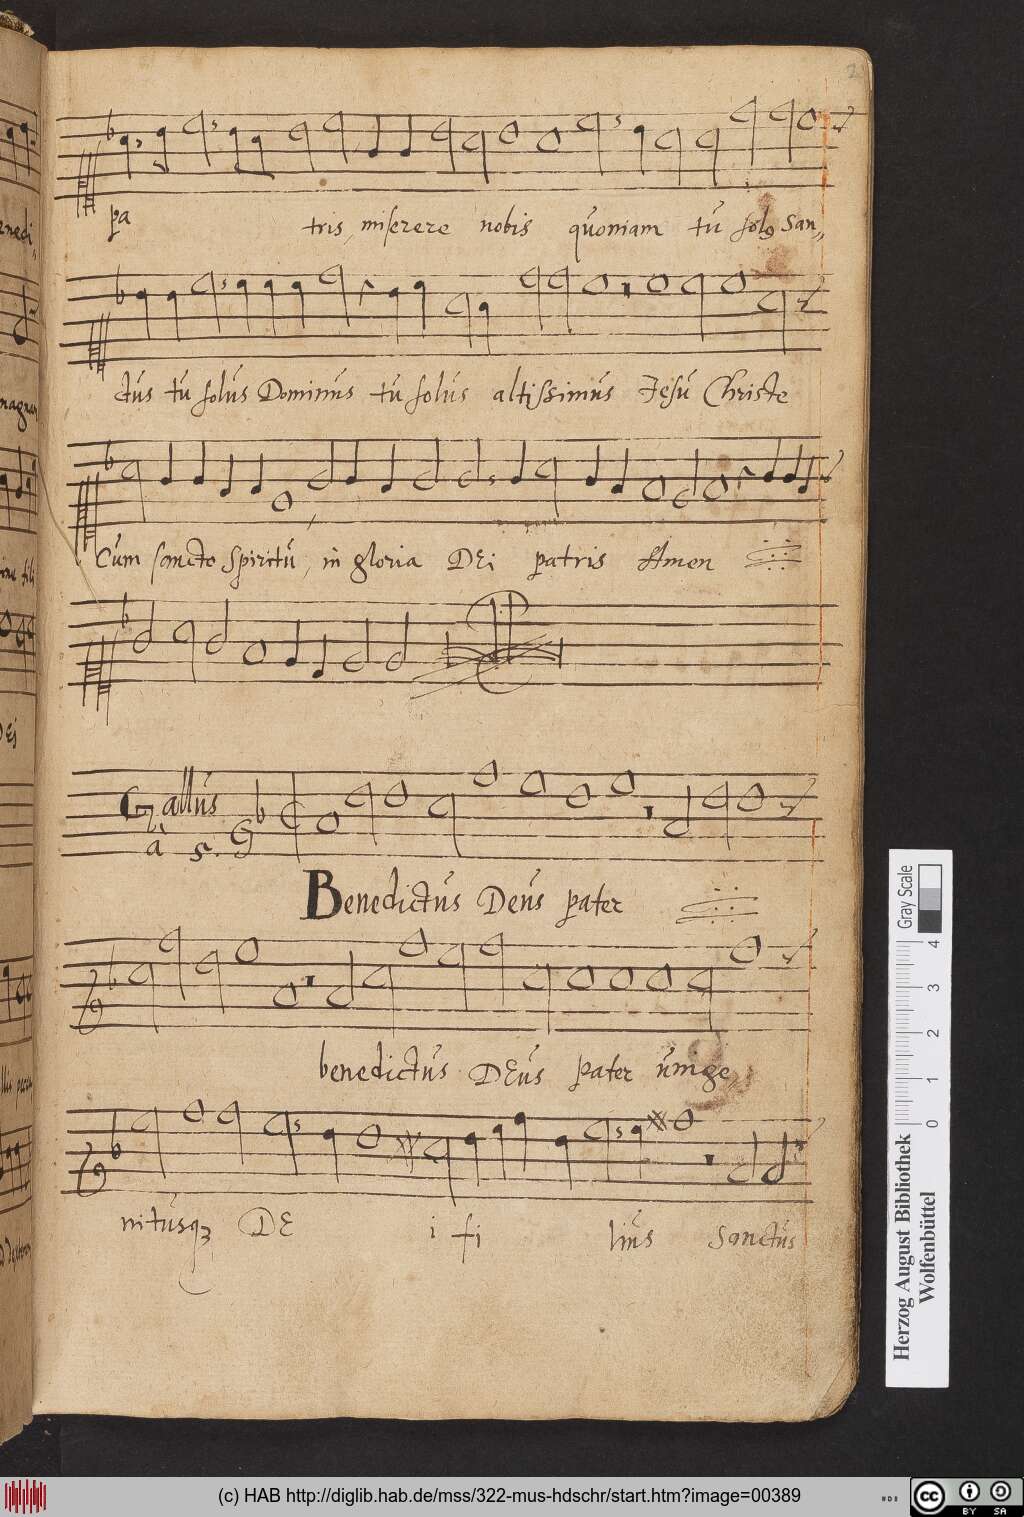 2
pa tris, miserere nobis quoniam tu sol9 San„
ctus tu solus Dominus tu solus altissimus Jesu Christe
Cum sancto Spiritu, in gloria DEi patris Amen
Gallus
à 5.
Benedictus Deus pater
benedictus DEus pater unige„
nitusq3 DE i fi lius Sanctus
Gray Scale
0 1 2 3 4
Herzog August Bibliothek
Wolfenbüttel
(c) HAB http://diglib.hab.de/mss/322-mus-hdschr/start.htm?image=00389
cc BY SA